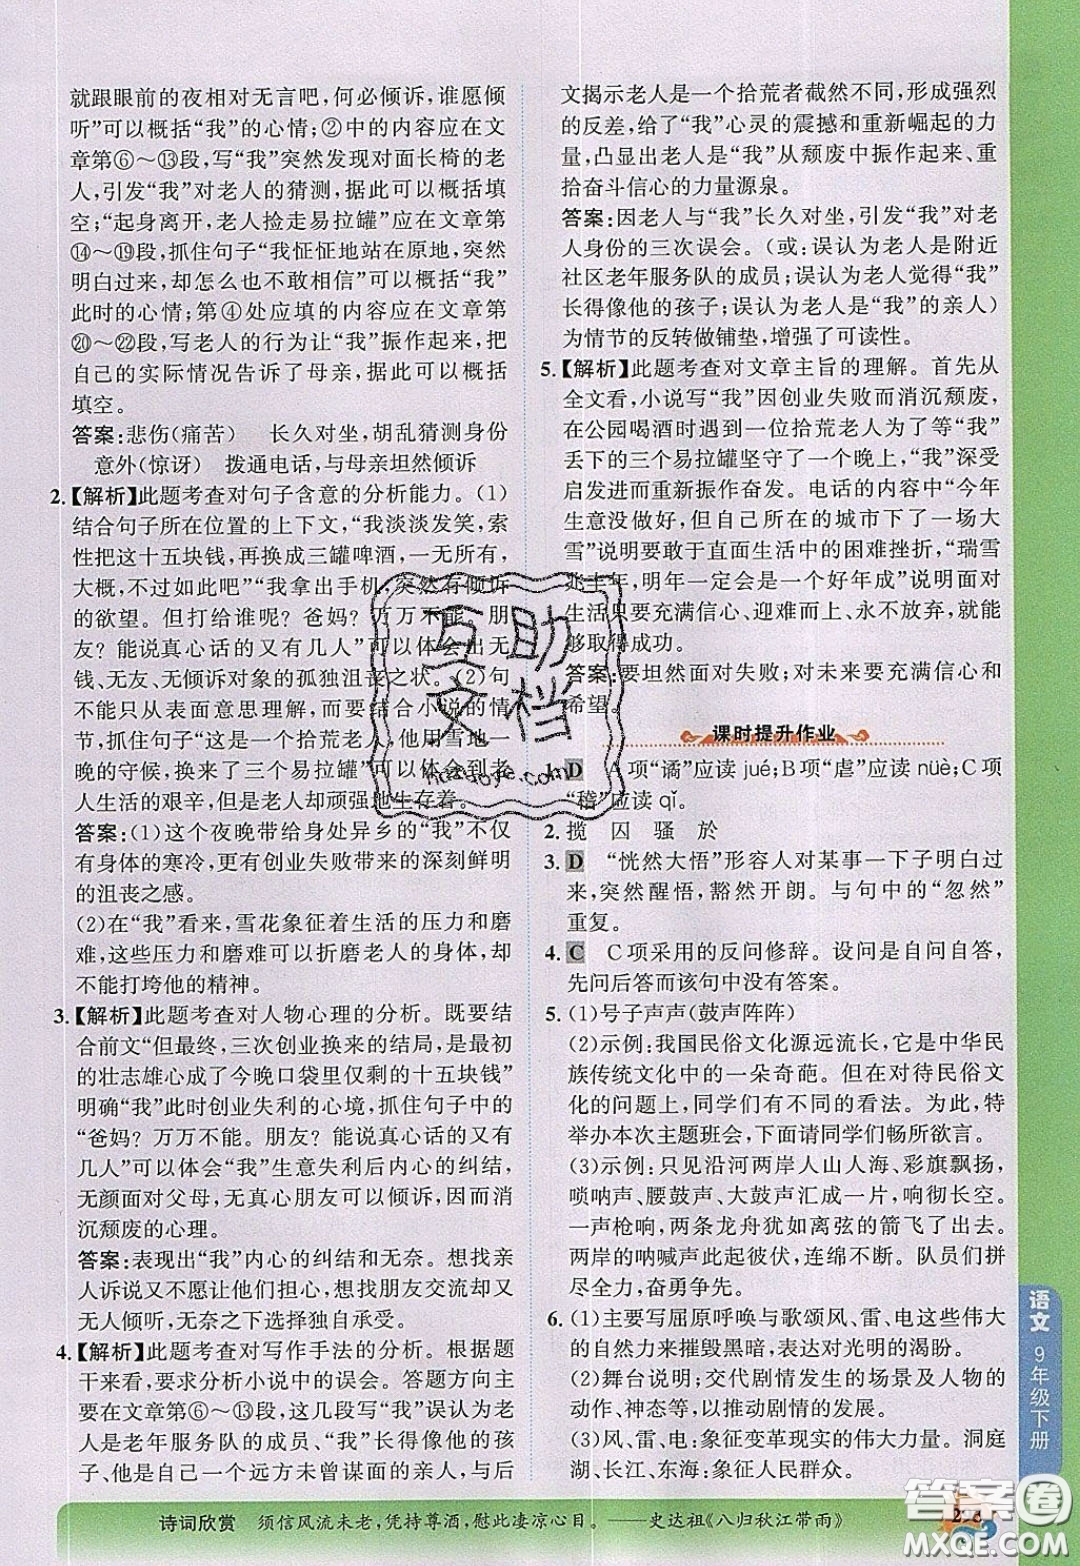 就跟眼前的夜相对无言吧,何必倾诉,谁愿倾
听”可以概括“我”的心情;②中的内容应在文
章第⑥～⑬段,写“我”突然发现对面长椅的老
人,引发“我”对老人的猜测,据此可以概括填
空;“起身离开,老人捡走易拉罐”应在文章第
⑭～⑲段,抓住句子“我怔怔地站在原地,突然
明白过来,却怎么也不敢相信”可以概括“我”
此时的心情;第④处应填的内容应在文章第
⑳～㉒段,写老人的行为让“我”振作起来,把
自己的实际情况告诉了母亲,据此可以概括
填空。
答案:悲伤(痛苦)　长久对坐,胡乱猜测身份
意外(惊讶)　拨通电话,与母亲坦然倾诉
2.【解析】此题考查对句子含意的分析能力。(1)
结合句子所在位置的上下文,“我淡淡发笑,索
性把这十五块钱,再换成三罐啤酒,一无所有,
大概,不过如此吧”“我拿出手机,突然有倾诉
的欲望。但打给谁呢? 爸妈? 万万不能。朋
友? 能说真心话的又有几人”可以体会出无
钱、无友、无倾诉对象的孤独沮丧之状。(2)句
不能只从表面意思理解,而要结合小说的情
节,抓住句子“这是一个拾荒老人,他用雪地一
晚的守候,换来了三个易拉罐”可以体会到老
人生活的艰辛,但是老人却顽强地生存着。
答案:(1)这个夜晚带给身处异乡的“我”不仅
有身体的寒冷,更有创业失败带来的深刻鲜明
的沮丧之感。
(2)在“我”看来,雪花象征着生活的压力和磨
难,这些压力和磨难可以折磨老人的身体,却
不能打垮他的精神。
3.【解析】此题考查对人物心理的分析。既要结
合前文“但最终,三次创业换来的结局,是最初
的壮志雄心成了今晚口袋里仅剩的十五块钱”
明确“我”此时创业失利的心境,抓住句子中的
“爸妈? 万万不能。朋友? 能说真心话的又有
几人”可以体会“我”生意失利后内心的纠结,
无颜面对父母,无真心朋友可以倾诉,从而消
沉颓废的心理。
答案:表现出“我”内心的纠结和无奈。想找
亲人诉说又不愿让他们担心,想找朋友交流却又
无人倾听,无奈之下选择独自承受。
4.【解析】此题考查对写作手法的分析。根据题
干来看,应分析小说中的误会。答题方向主
要在文章第⑥～⑬段,这几段写“我”误认为老
人是老年服务队的成员、“我”长得像他的孩
子、他是自己一个远方未曾谋面的亲人,与后
文揭示老人是一个拾荒者截然不同,形成强烈
的反差,给了“我”心灵的震撼和重新崛起的力
量,凸显出老人是“我”从颓废中振作起来、重
拾奋斗信心的力量源泉。
答案:因老人与“我”长久对坐,引发“我”对老
人身份的三次误会。(或:误认为老人是附近
社区老年服务队的成员;误认为老人觉得“我”
长得像他的孩子;误认为老人是“我”的亲人)
为情节的反转做铺垫,增强了可读性。
5.【解析】此题考查对文章主旨的理解。首先从
全文看,小说写“我”因创业失败而消沉颓废,
在公园喝酒时遇到一位拾荒老人为了等“我”
丢下的三个易拉罐坚守了一个晚上,“我”深受
启发进而重新振作奋发。电话的内容中“今年
生意没做好,但我所在的城市下了一场大
雪”说明要敢于直面生活中的困难挫折,“瑞雪
兆丰年,明年一定会是一个好年成”说明面对
生活只要充满信心、迎难而上、永不放弃,就能
够取得成功。
答案:要坦然面对失败;对未来要充满信心和
希望。
课时提升作业
1. D　A项“谲”应读jué;B项“虐”应读nüè;C项
“稽”应读qǐ。
2. 揽　囚　骚　於
3. D　“恍然大悟”形容人对某事一下子明白过
来,突然醒悟,豁然开朗。与句中的“忽然”
重复。
4. C　C项采用的反问修辞。设问是自问自答,
先问后答而该句中没有答案。
5. (1)号子声声(鼓声阵阵)
(2)示例:我国民俗文化源远流长,它是中华民
族传统文化中的一朵奇葩。但在对待民俗文
化的问题上,同学们有不同的看法。为此,特
举办本次主题班会,下面请同学们畅所欲言。
(3)示例:只见沿河两岸人山人海、彩旗飘扬,
唢呐声、腰鼓声、大鼓声汇成一片,响彻长空。
一声枪响,两条龙舟犹如离弦的箭飞了出去。
两岸的呐喊声此起彼伏,连绵不断。队员们拼
尽全力,奋勇争先。
6. (1)主要写屈原呼唤与歌颂风、雷、电这些伟大
的自然力量来摧毁黑暗,表达对光明的渴盼。
(2)舞台说明;交代剧情发生的场景及人物的
动作、神态等,以推动剧情的发展。
(3)风、雷、电:象征变革现实的伟大力量。洞庭
湖、长江、东海:象征人民群众。
诗词欣赏　须信风流未老,凭持尊酒,慰此凄凉心目。——史达祖《八归秋江带雨》
语文 9年级下册
互助文档
答案圈
MXQE.COM